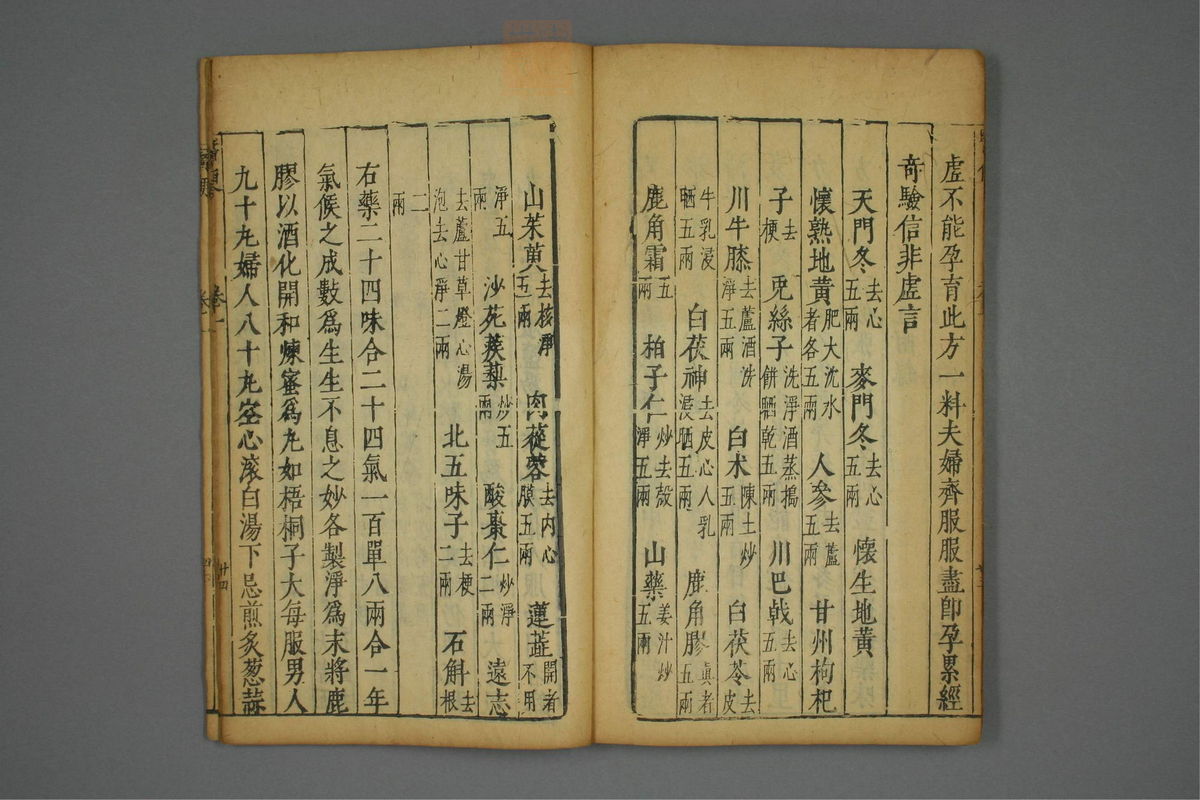 虛不能孕育此方一料夫婦齊服服盡卽孕累經
奇驗信非虛言
天門冬去心五兩 麥門冬去心五兩 懷生地黃
懷熟地黃肥大沈水者各五兩 人參去蘆五兩 甘州枸杞
子去梗 兎絲子洗淨酒蒸搗餅晒乾五兩 川巴戟去心五兩
川牛膝去蘆酒洗淨五兩 白术陳土炒五兩 白茯苓去皮
牛乳浸晒五兩 白茯神去皮心人乳浸晒五兩 鹿角膠眞者五兩
鹿角霜五兩 柏子仁炒去殼淨五兩 山藥姜汁炒五兩
山茱萸去核淨五兩 肉蓯蓉去内心膜五兩 蓮蕋開者不用
淨五兩 沙苑蒺藜炒五兩 酸棗仁炒淨二兩 遠志
去蘆甘草燈心湯泡去心淨二兩 北五味子去梗二兩 石斛去根
二兩
右藥二十四味合二十四氣一百單八兩合一年
氣候之成數爲生生不息之妙各製淨爲末將鹿
膠以酒化開和煉蜜爲丸如梧桐子大每服男人
九十丸婦人八十丸空心滚白湯下忌煎炙葱蒜
卷一
廿四